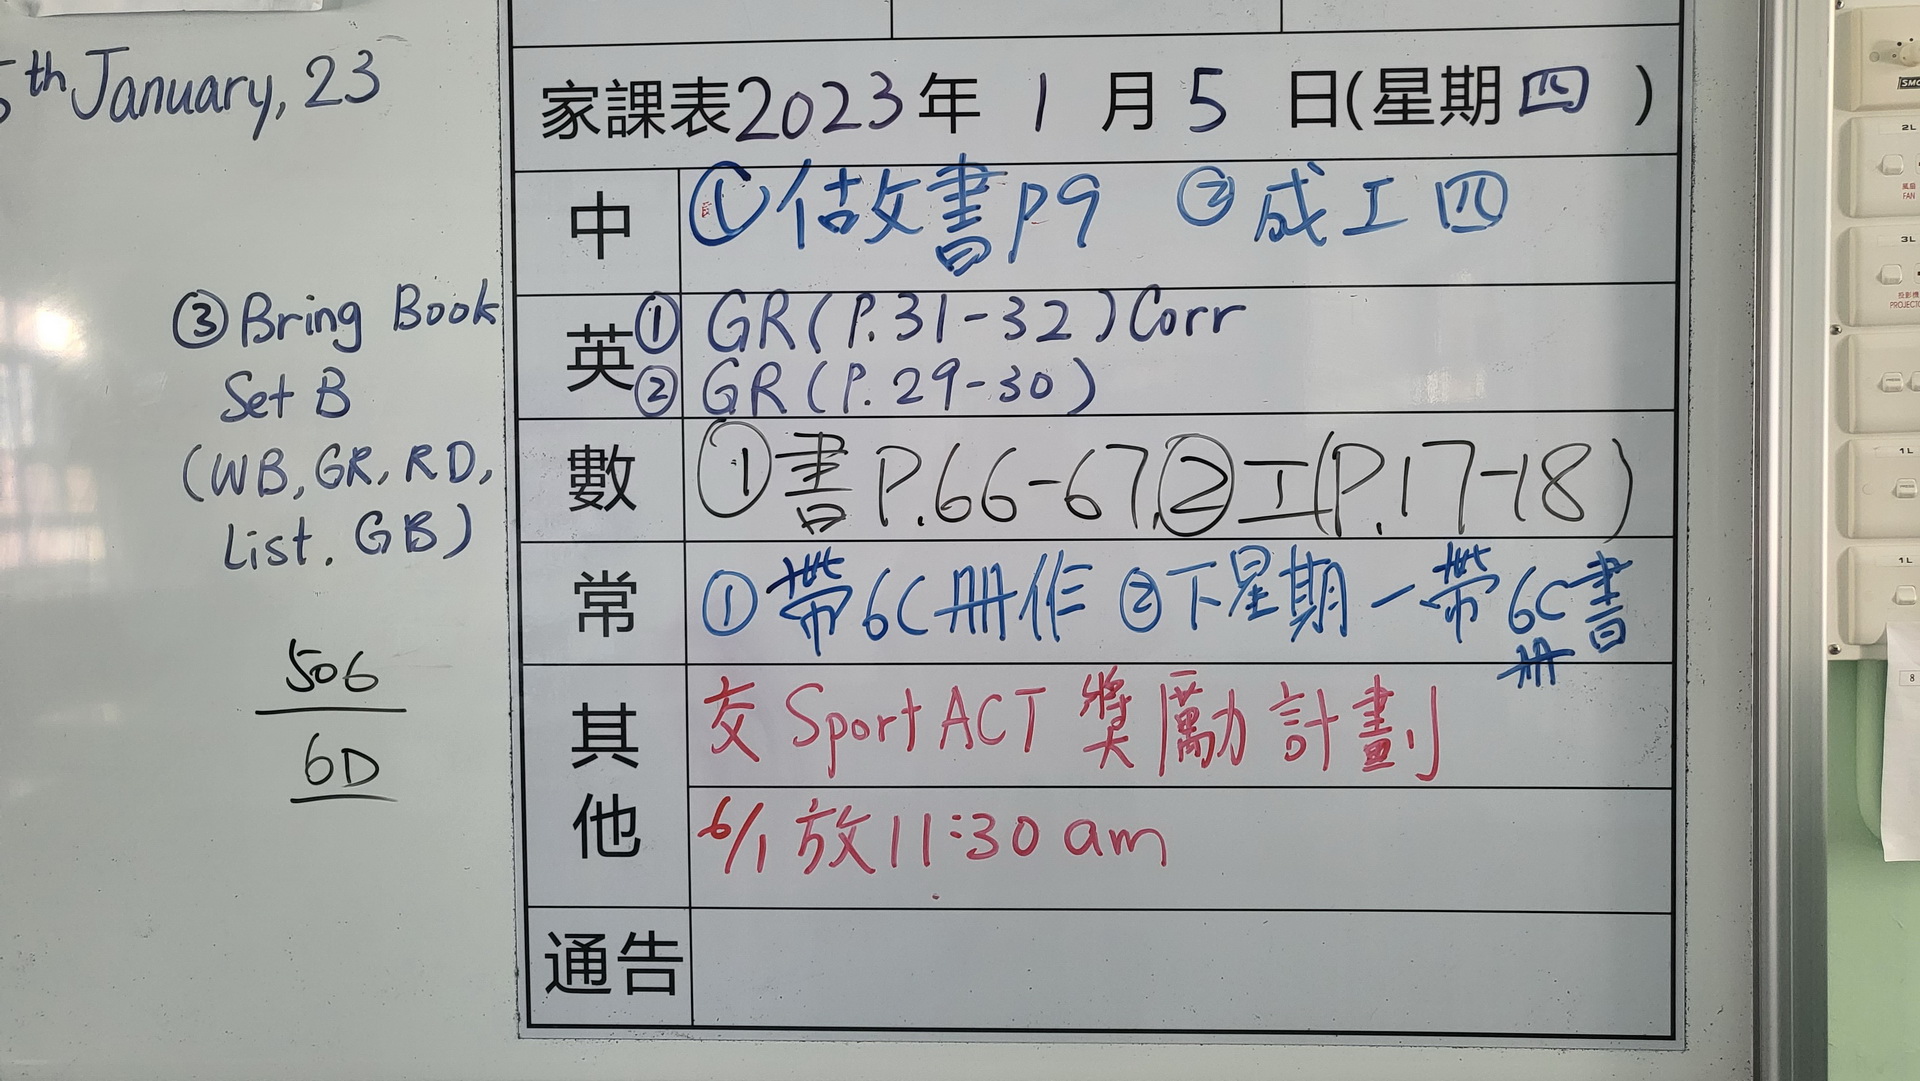 5th January, 23
③ Bring Book
Set B
(WB, GR, RD,
List, GB)
506
6D
家課表2023年 1 月 5 日(星期四)
中 ① 做書P9 ② 成工四
英 ① GR(P.31-32)Corr
② GR(P.29-30)
數 ①書P.66-67,②工(P.17-18)
常 ①帶6C冊作 ②下星期一帶6C書
冊
其他 交 Sport ACT 獎勵計劃
6/1 放11:30 am
通告
2L
風扇
FAN
3L
投影機
1L
1L
8